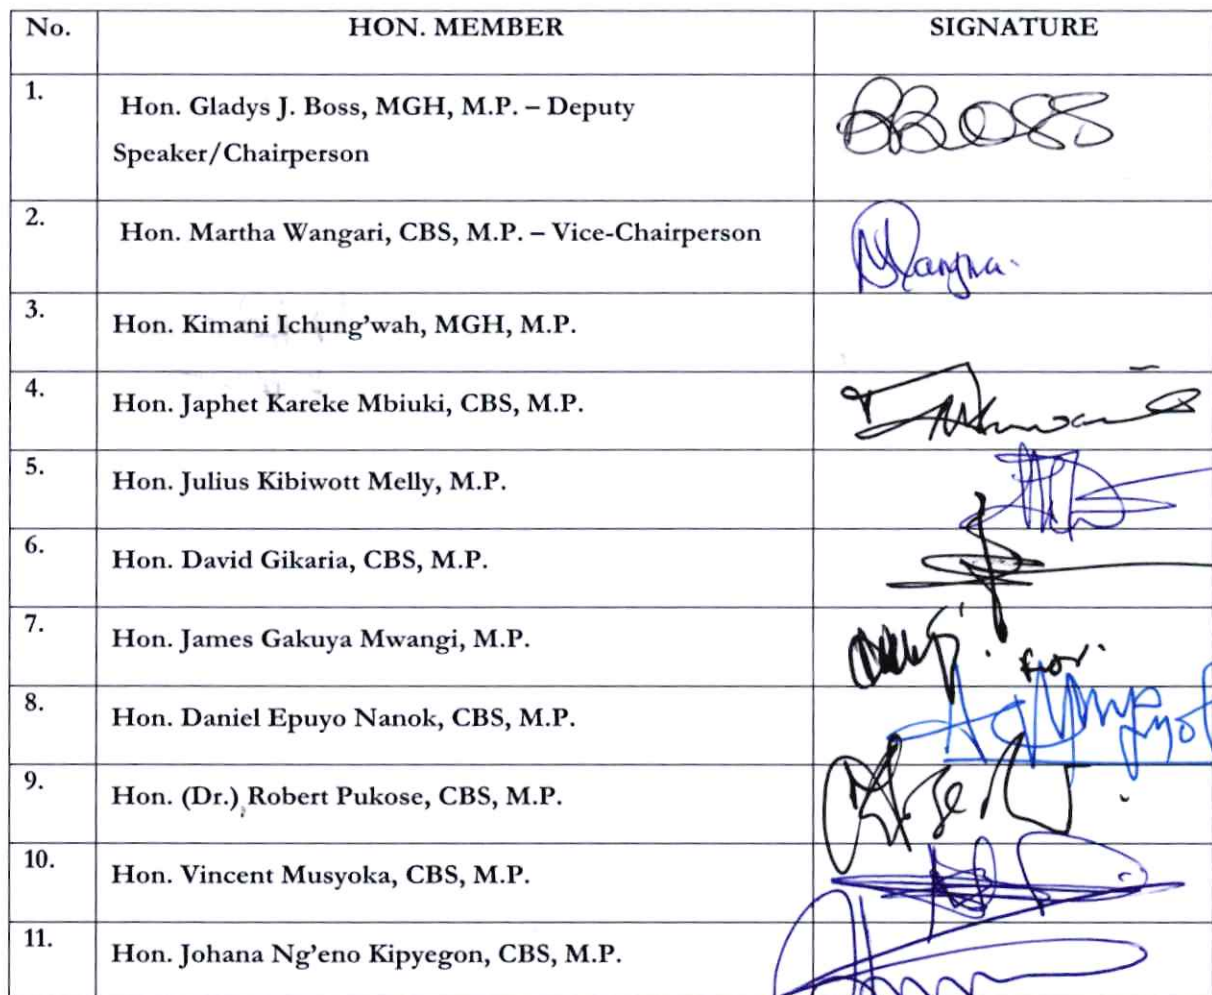 No. HON. MEMBER SIGNATURE
1. Hon. Gladys J. Boss, MGH, M.P. – Deputy
Speaker/Chairperson
BBOSS
2. Hon. Martha Wangari, CBS, M.P. – Vice-Chairperson
3. Hon. Kimani Ichung'wah, MGH, M.P.
4. Hon. Japhet Kareke Mbiuki, CBS, M.P.
5. Hon. Julius Kibiwott Melly, M.P.
6. Hon. David Gikaria, CBS, M.P.
7. Hon. James Gakuya Mwangi, M.P.
8. Hon. Daniel Epuyo Nanok, CBS, M.P.
9. Hon. (Dr.) Robert Pukose, CBS, M.P.
10. Hon. Vincent Musyoka, CBS, M.P.
11. Hon. Johana Ng'eno Kipyegon, CBS, M.P.